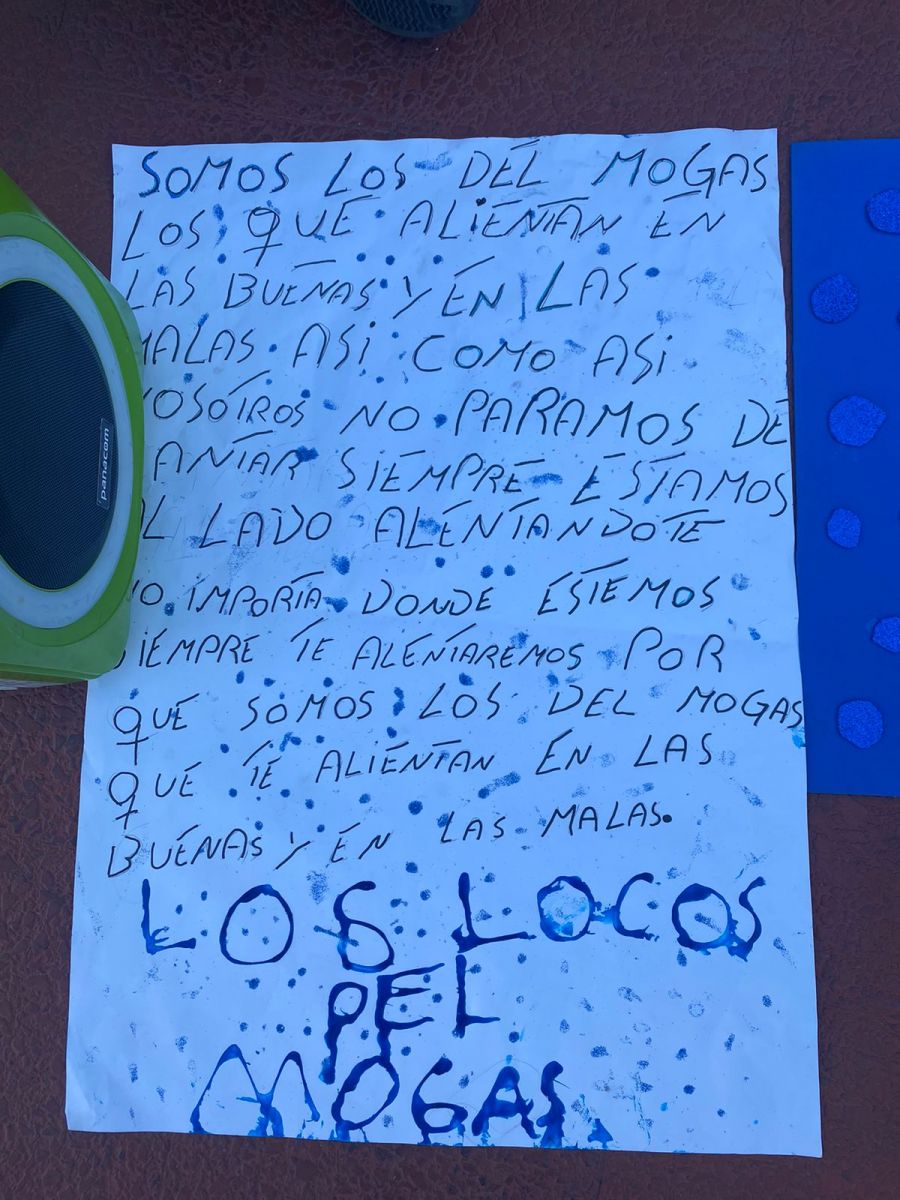 SOMOS LOS DEL MOGAS
LOS QUE ALIENTAN EN
LAS BUENAS Y EN LAS
MALAS ASI COMO ASI
NOSOTROS NO PARAMOS DE
CANTAR SIEMPRE ESTAMOS
AL LADO ALENTANDOTE
NO IMPORTA DONDE ESTEMOS
SIEMPRE TE ALENTAREMOS POR
QUE SOMOS LOS DEL MOGAS
QUE TE ALIENTAN EN LAS
BUENAS Y EN LAS MALAS.
LOS LOCOS
DEL
MOGAS
panacom